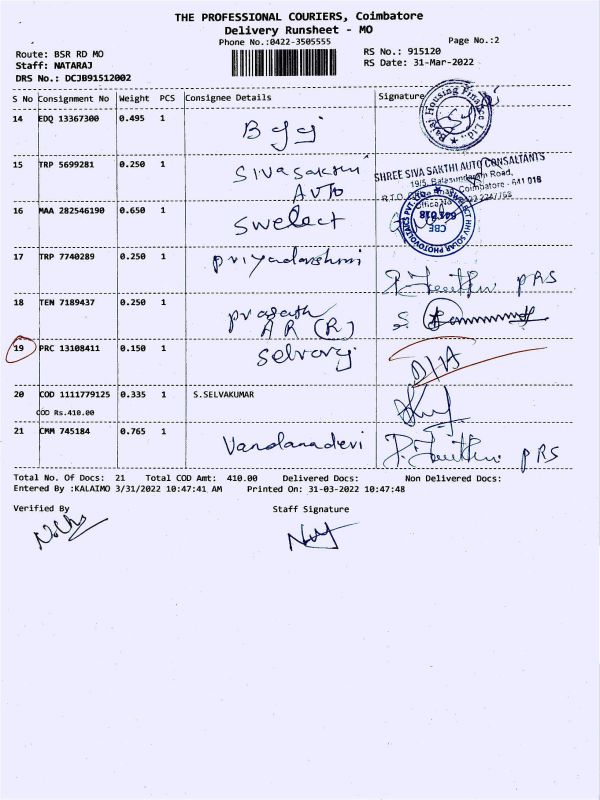 THE PROFESSIONAL COURIERS, Coimbatore
Delivery Runsheet - MO
Phone No.:0422-3505555 Page No.:2
Route: BSR RD MO RS No.: 915120
Staff: NATARAJ RS Date: 31-Mar-2022
DRS No.: DCJB91512002
S No Consignment No Weight PCS Consignee Details Signature
14 EDQ 13367300 0.495 1
Bajaj Housing Finance Ltd.
15 TRP 5699281 0.250 1 Sivasakthi
AUTO
SHREE SIVA SAKTHI AUTO CONSULTANTS
19/5, Balasundaram Road,
Coimbatore - 641 018
16 MAA 282546190 0.650 1 Swelect
SWELECT HHV SOLAR PHOTOVOLTAICS PVT. LTD.
CBE
641 018
17 TRP 7740289 0.250 1 Priyadarshini PRS
18 TEN 7189437 0.250 1 Prasath
AR (R)
19 PRC 13108411 0.150 1 Selvaraj
20 COD 1111779125 0.335 1 S.SELVAKUMAR
COD Rs.410.00
21 CMM 745184 0.765 1 Vandanadevi PRS
Total No. Of Docs: 21 Total COD Amt: 410.00 Delivered Docs: Non Delivered Docs:
Entered By :KALAIMO 3/31/2022 10:47:41 AM Printed On: 31-03-2022 10:47:48
Verified By Staff Signature